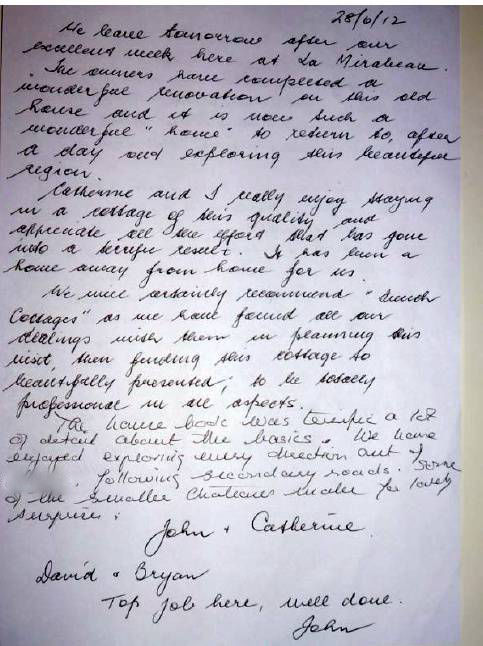 28/6/12
We leave tomorrow after our
excellent week here at La Mirabeau.
The owners have completed a
wonderful renovation on this old
house and it is now such a
wonderful "home" to return to, after
a day out exploring this beautiful
region.
Catherine and I really enjoy staying
in a cottage of this quality and
appreciate all the effort that has gone
into a terrific result. It has been a
home away from home for us.
We will certainly recommend "French
Cottages" as we have found all our
dealings with them in planning this
visit, then finding this cottage so
beautifully presented, to be totally
professional in all aspects.
The house book was terrific a lot
of detail about the basics. We have
enjoyed exploring every direction out of
, following secondary roads. Some
of the smaller Chateaus made for lovely
surprises.
John + Catherine.
David & Bryan
Top job here, well done.
John